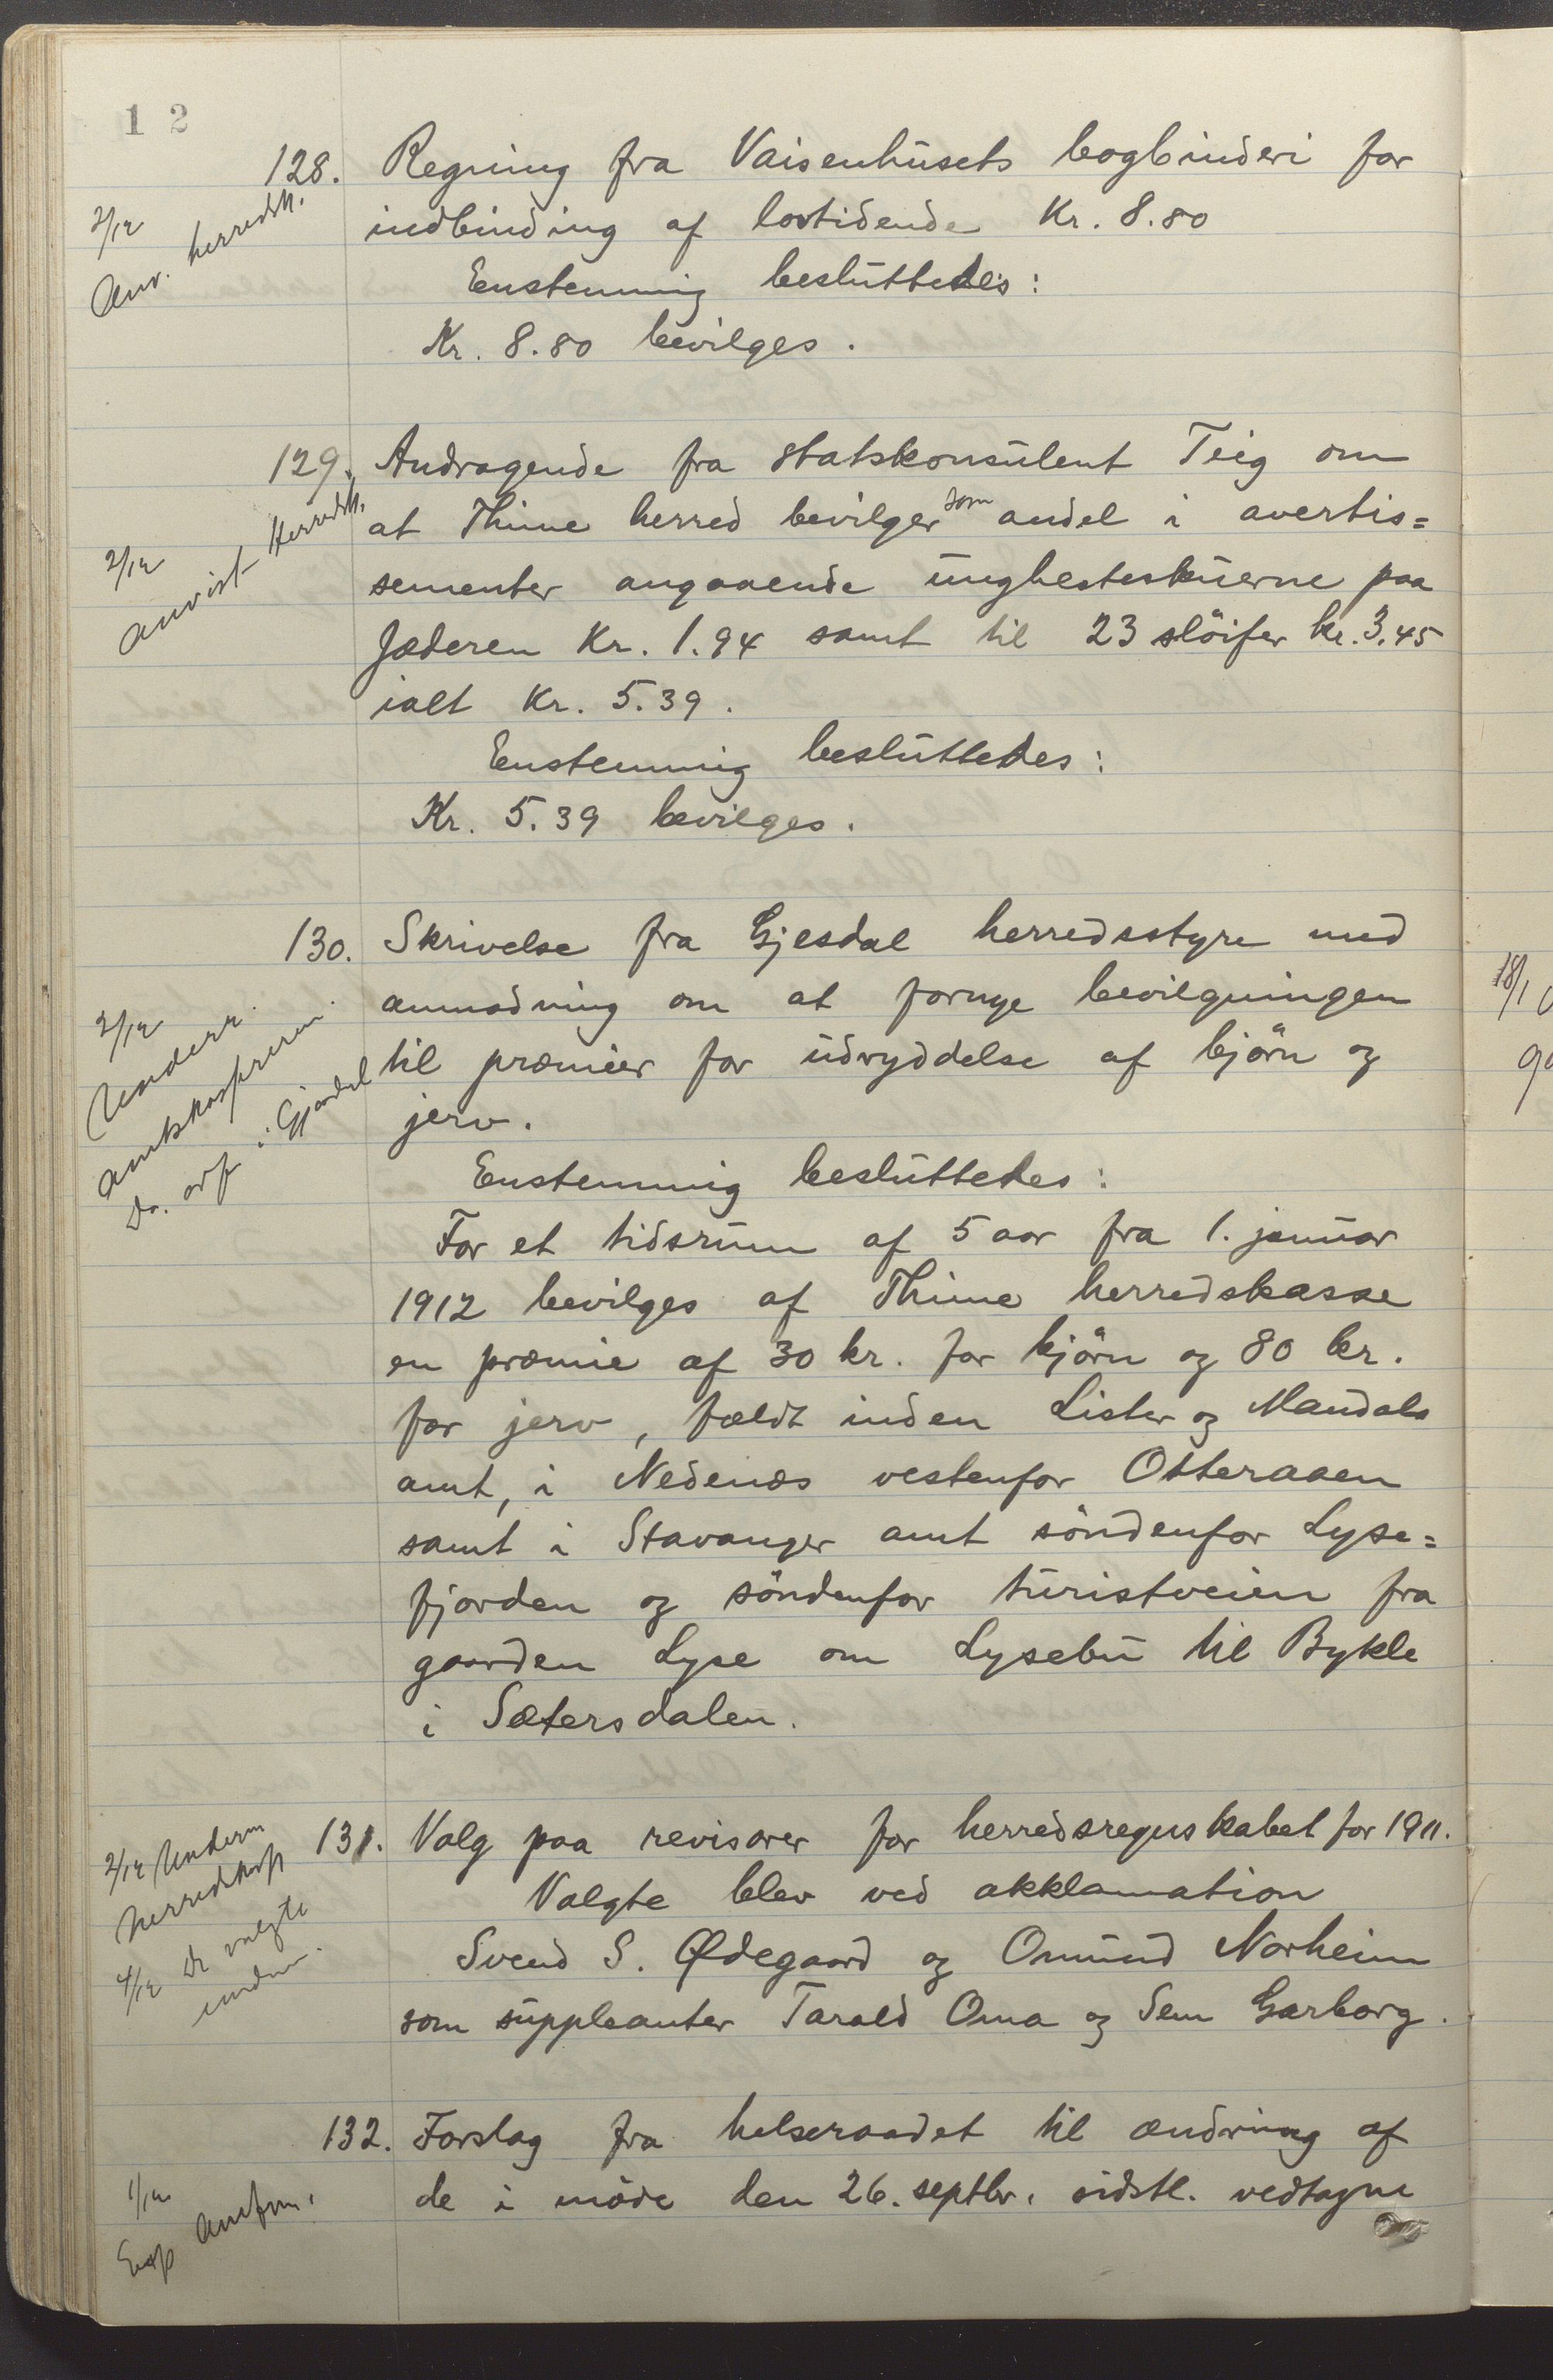 12
128. Regning fra Vaisenhusets bogbinderi for
indbinding af lovtidende Kr. 8.80
Enstemmig besluttedes:
Kr. 8.80 bevilges.
2/12
Anv. herredsk.
129. Andragende fra statskonsulent Teig om
at Thime herred bevilger som andel i avertis=
sementer angaaende unghesteskuerne paa
Jæderen Kr. 1.94 samt til 23 slöifer kr. 3.45
ialt Kr. 5.39.
Enstemmig besluttedes:
Kr. 5.39 bevilges.
2/12
anvist Herredsk.
130. Skrivelse fra Gjesdal herredsstyre med
anmodning om at fornye bevilgningen
til præmier for udryddelse af björn og
jerv.
Enstemmig besluttedes:
For et tidsrum af 5 aar fra 1. januar
1912 bevilges af Thime herredskasse
en præmie af 30 kr. for björn og 80 kr.
for jerv, fældt inden Lister og Mandals
amt, i Nedenæs vestenfor Otteraaen
samt i Stavanger amt söndenfor Lyse=
fjorden og söndenfor turistveien fra
gaarden Lyse om Lysebu til Bykle
i Sætersdalen.
2/12
Underr.
Do. orf i Gjesdal
131. Valg paa revisorer for herredsregnskabet for 1911.
Valgte blev ved akklamation
Svend S. Ødegaard og Omund Norheim
som suppleanter Tarald Oma og Sem Garborg.
2/12 Underr
4/12 De valgte
underr.
132. Forslag fra helseraadet til ændring af
de i möde den 26. septbr. sidstl. vedtagne
1/12
Exp Amtm.
18/1